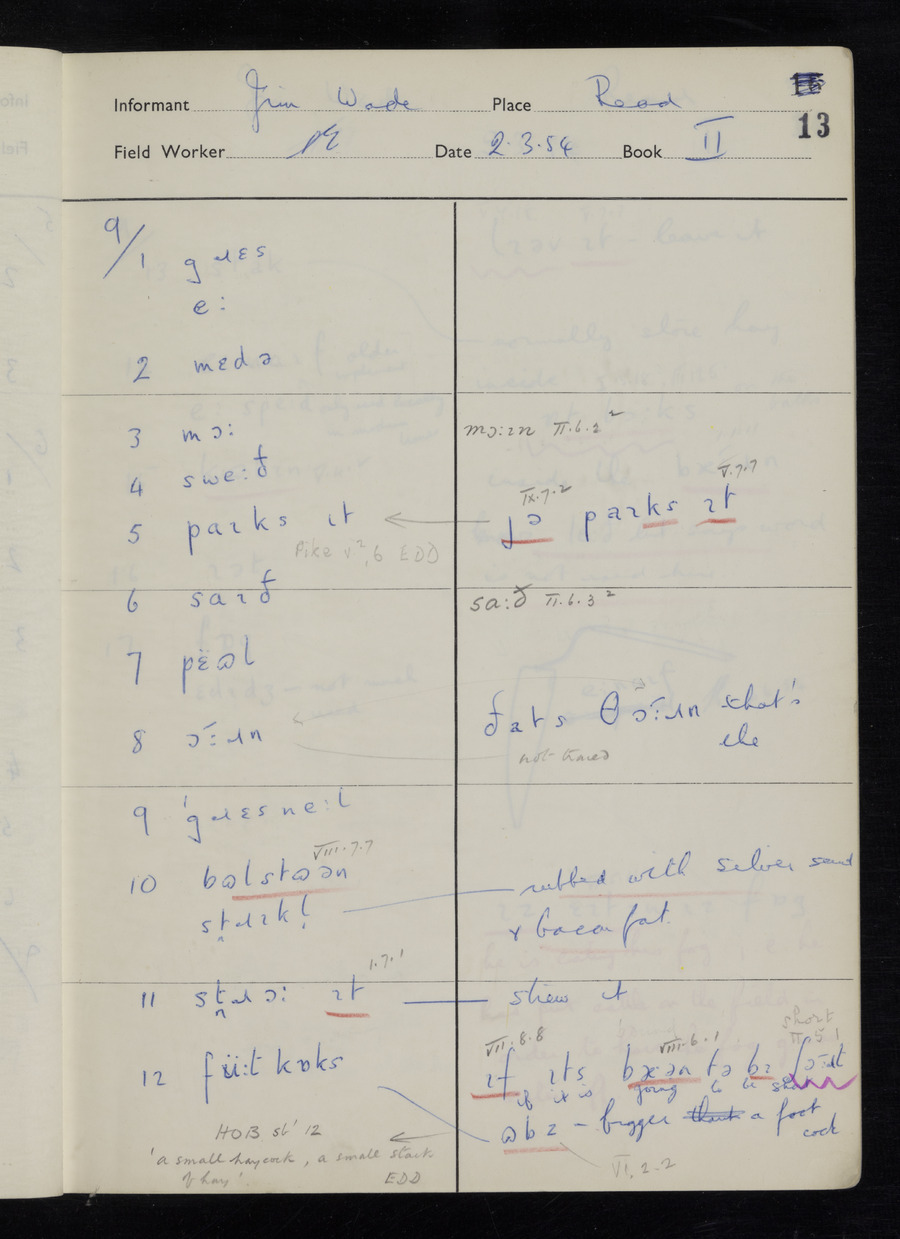 Informant Jim Wade Place Read
13
Field Worker Date 2.3.54 Book II
9/1 gɹɛs
e:
2 mɛdə
3 mɔ: mɔ:ɪn II.6.2²
4 swe:ð
5 paɪks ɪt jə paɪks ɪt
IX.7.2 V.7.7
Pike v²,6 EDD
6 saɪð sa:ð II.6.3²
7 pëəl
8 ɔ̄:ɹn ðats θɔ̄:ɹn that's
not traced
9 'gɹɛsne:l
10 bəlstəən VIII.7.7 rubbed with silver sand
stɹɪkl & bacon fat.
11 stɹɔ: ɪt 1.7.1 strew it
12 füːtkɒks ɪf ɪts bəən tə bɪ ʃɔ̄:ɹt
VII.8.8 VIII.6.1 short
if it is going to be
ɒbz – bigger than a foot
cock
HOB sb' 12
'a small haycock, a small stack
of hay' EDD
VI.2.2